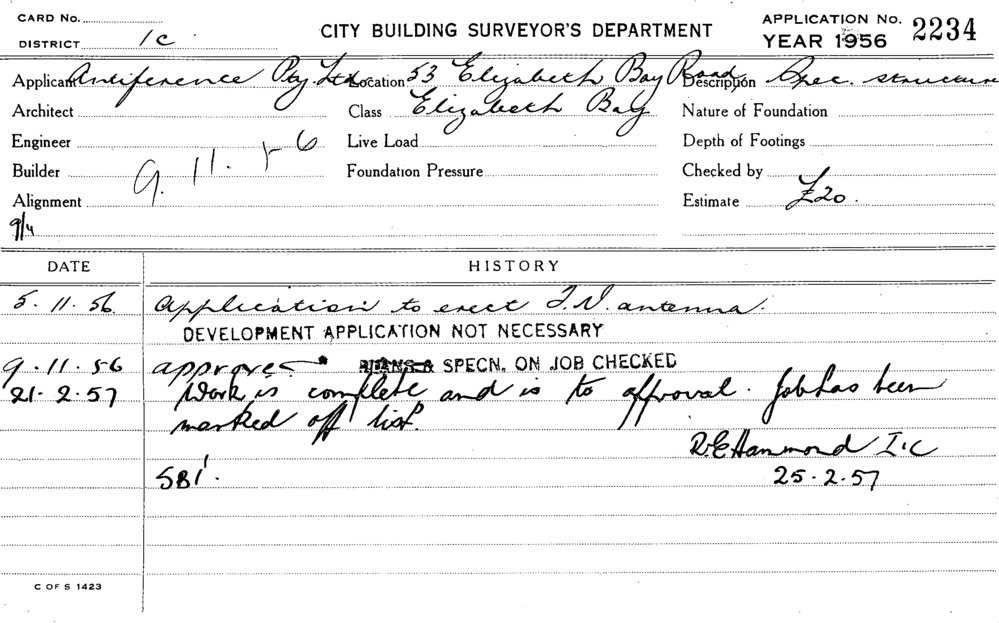 CARD No.
DISTRICT 1C
CITY BUILDING SURVEYOR'S DEPARTMENT
APPLICATION No. 2234
YEAR 1956
Applicant Antiference Pty Ltd Location 53 Elizabeth Bay Road Description Spec. structure
Architect Class Elizabeth Bay Nature of Foundation
Engineer Live Load Depth of Footings
Builder 9.11.56 Foundation Pressure Checked by
Alignment Estimate £20.
9/4
DATE HISTORY
5.11.56 Application to erect T.V. antenna.
DEVELOPMENT APPLICATION NOT NECESSARY
9.11.56 approved SPECN. ON JOB CHECKED
21.2.57 Work is complete and is to approval. Job has been
marked off list.
R.E. Hammond I.C
SBI. 25.2.57
C OF S 1423